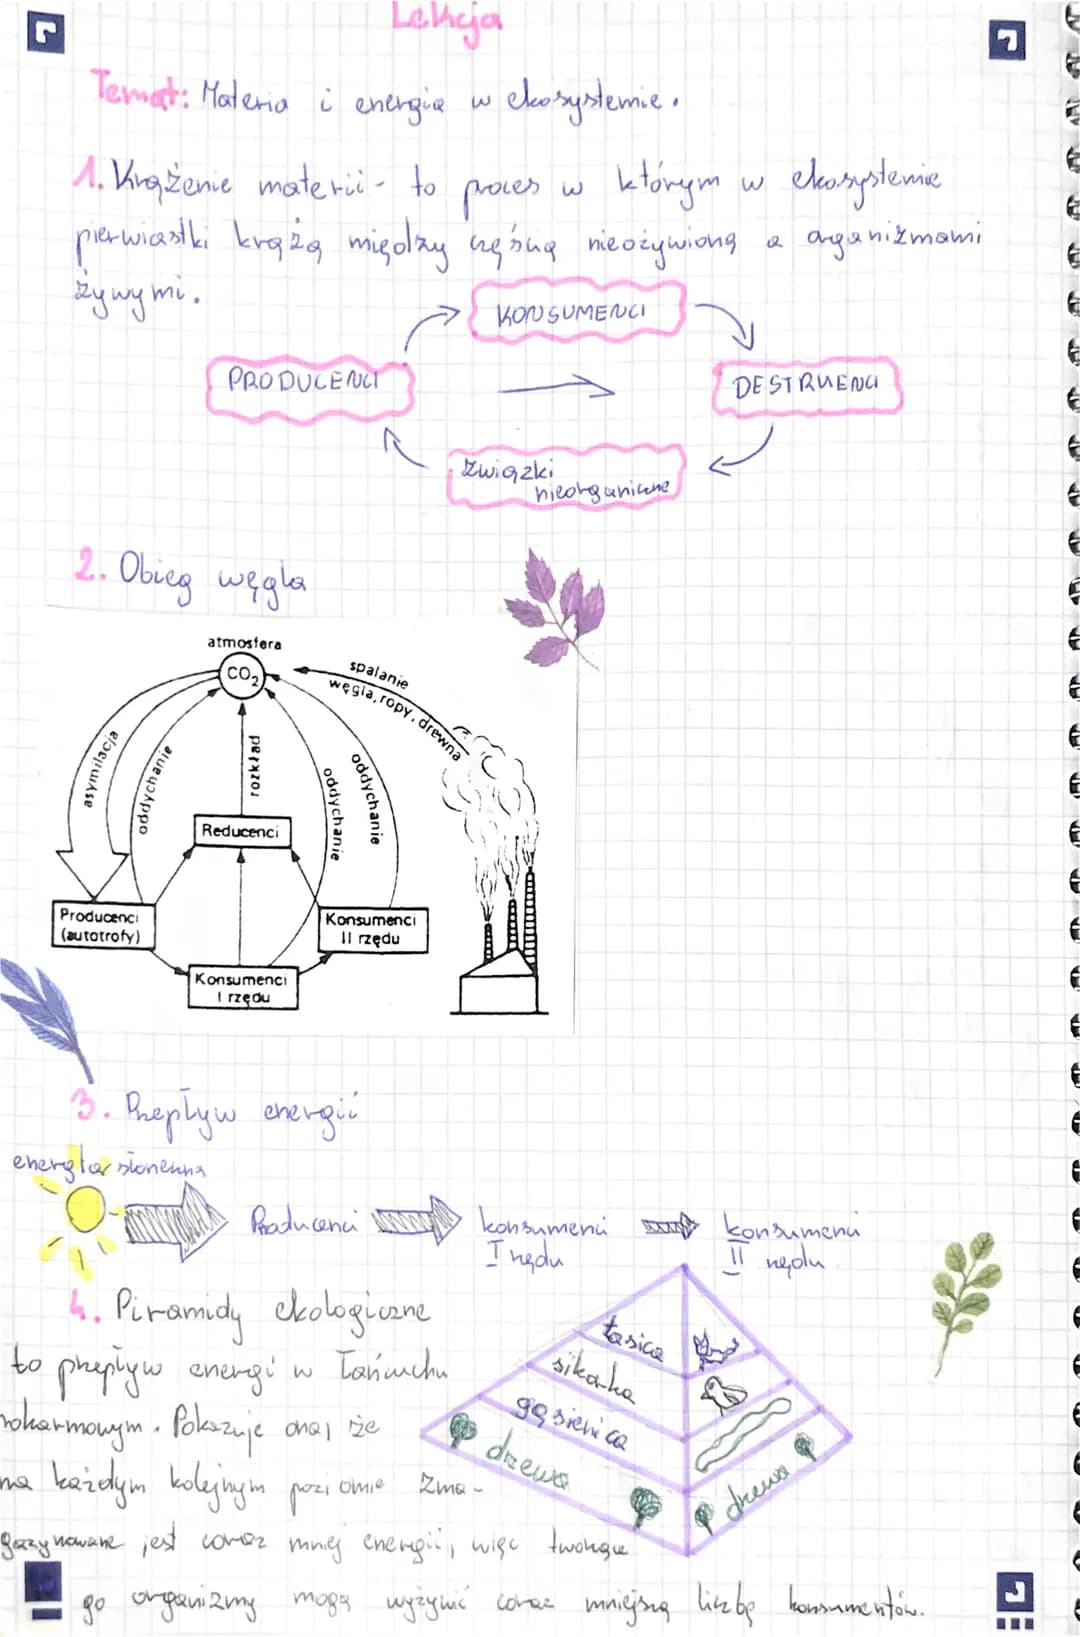 Lekcja
Temat: Materia i energia w ekosystemie.
1. Krążenie materii - to proces w którym w ekosystemie
pierwiastki krążą między częścią nieożywioną a organizmami
żywymi.
KONSUMENCI
PRODUCENCI
DESTRUENCI
Związki
nieorganiczne
2. Obieg węgla
atmosfera
CO2
spalanie
węgla, ropy, drewna
asymilacja
oddychanie
rozkład
oddychanie
oddychanie
Reducenci
Producenci
(autotrofy)
Konsumenci
II rzędu
Konsumenci
I rzędu
3. Przepływ energii
energia słoneczna
Producenci
konsumenci
I rzędu
konsumenci
II rzędu
4. Piramidy ekologiczne
to przepływ energi w łańcuchu
pokarmowym. Pokazuje ona, że
na każdym kolejnym poziomie zma-
gazynowane jest coraz mniej energii, więc tworzące
go organizmy mogą wyżywić coraz mniejszą liczbę konsumentów.
łasica
sikorka
gąsienica
drzewa
drzewa